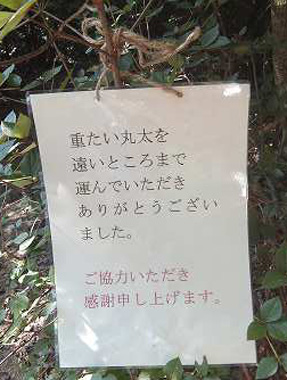 重たい丸太を
遠いところまで
運んでいただき
ありがとうござい
ました。
ご協力いただき
感謝申し上げます。